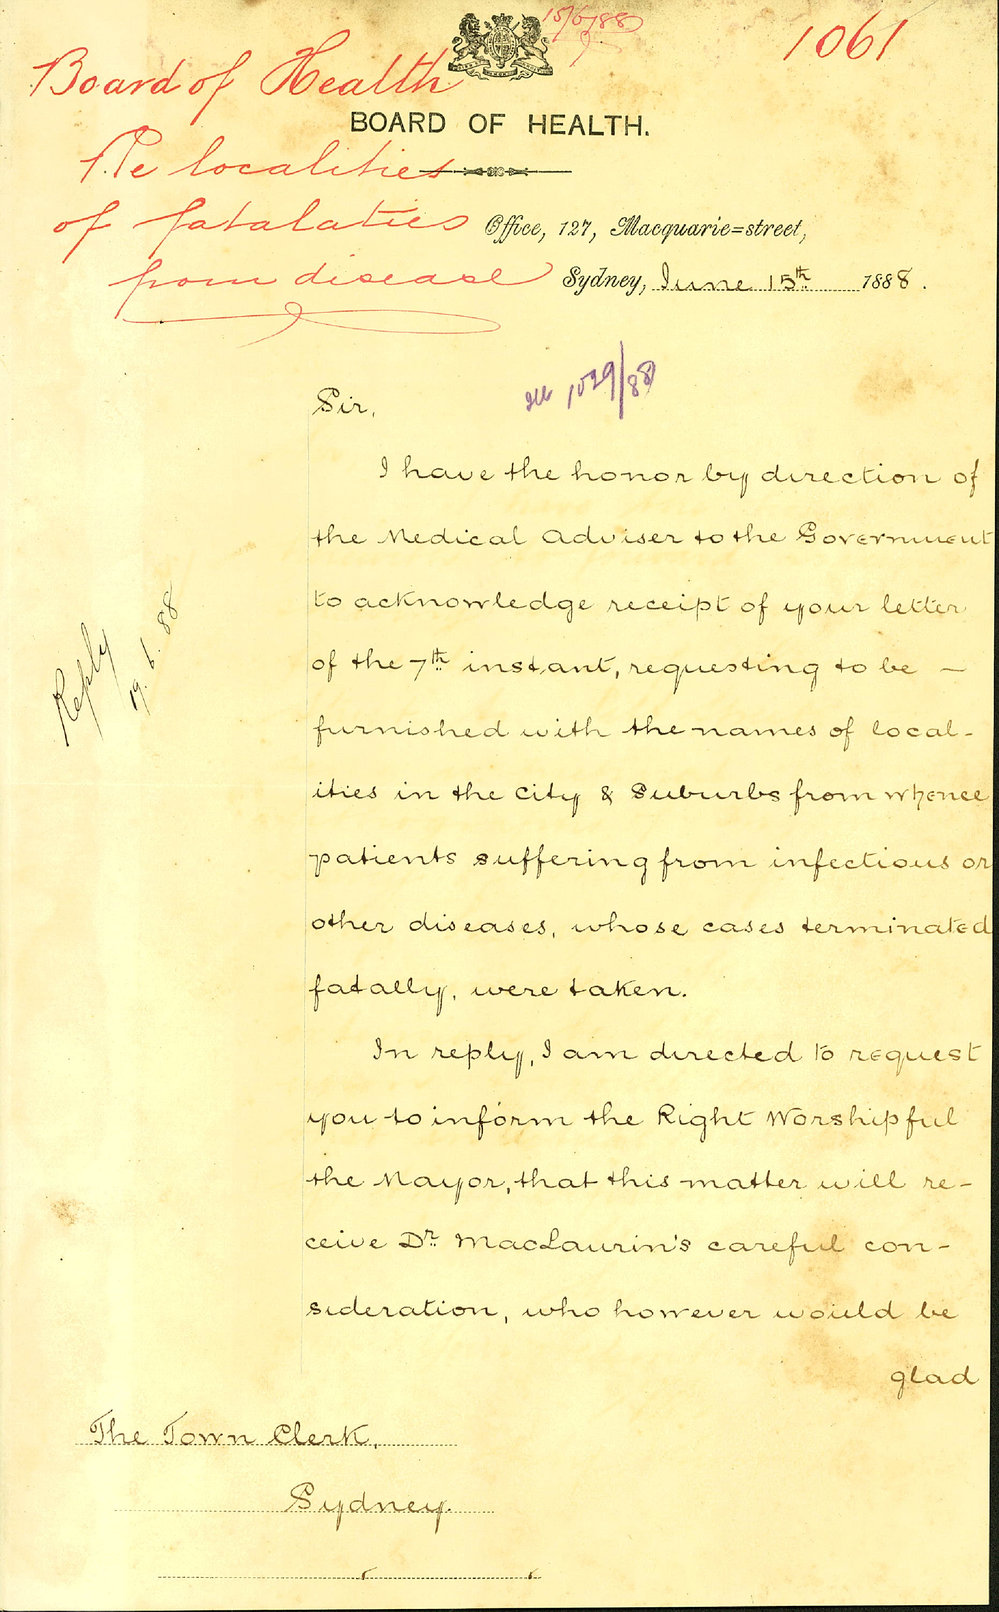 15/6/88
1061
Board of Health
BOARD OF HEALTH.
Re localities
of fatalaties
from disease
Office, 127, Macquarie=street,
Sydney, June 15th 1888.
1029/88
Sir,
I have the honor by direction of
the Medical Adviser to the Government
to acknowledge receipt of your letter
of the 7th instant, requesting to be —
furnished with the names of local-
ities in the City & Suburbs from whence
patients suffering from infectious or
other diseases, whose cases terminated
fatally, were taken.
In reply, I am directed to request
you to inform the Right Worshipful
the Mayor, that this matter will re-
ceive Dr. MacLaurin's careful con-
sideration, who however would be
glad
Reply
19.6.88
The Town Clerk,
Sydney.